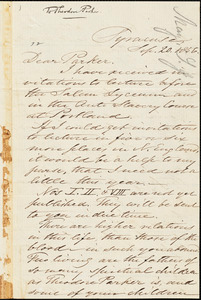 To Theodore Parker
May, S. J.
Syracuse
Sep. 22, 1855.
Dear Parker,
I have received in-
vitations to lecture before
the Salem Lyceum and
in the Anti Slavery Course
at Portland.
If I could get invitations
to lecture in five or six
more places in N. England,
it would be a help to my
purse, that I need not a
little this year.
Nos I. II. & VIII are not yet
published. They will be sent
to you in due time.
There are higher relations
in this life than those of the
blood
living are the fathers of
so many spiritual children
as Theodore Parker is and
some of your children